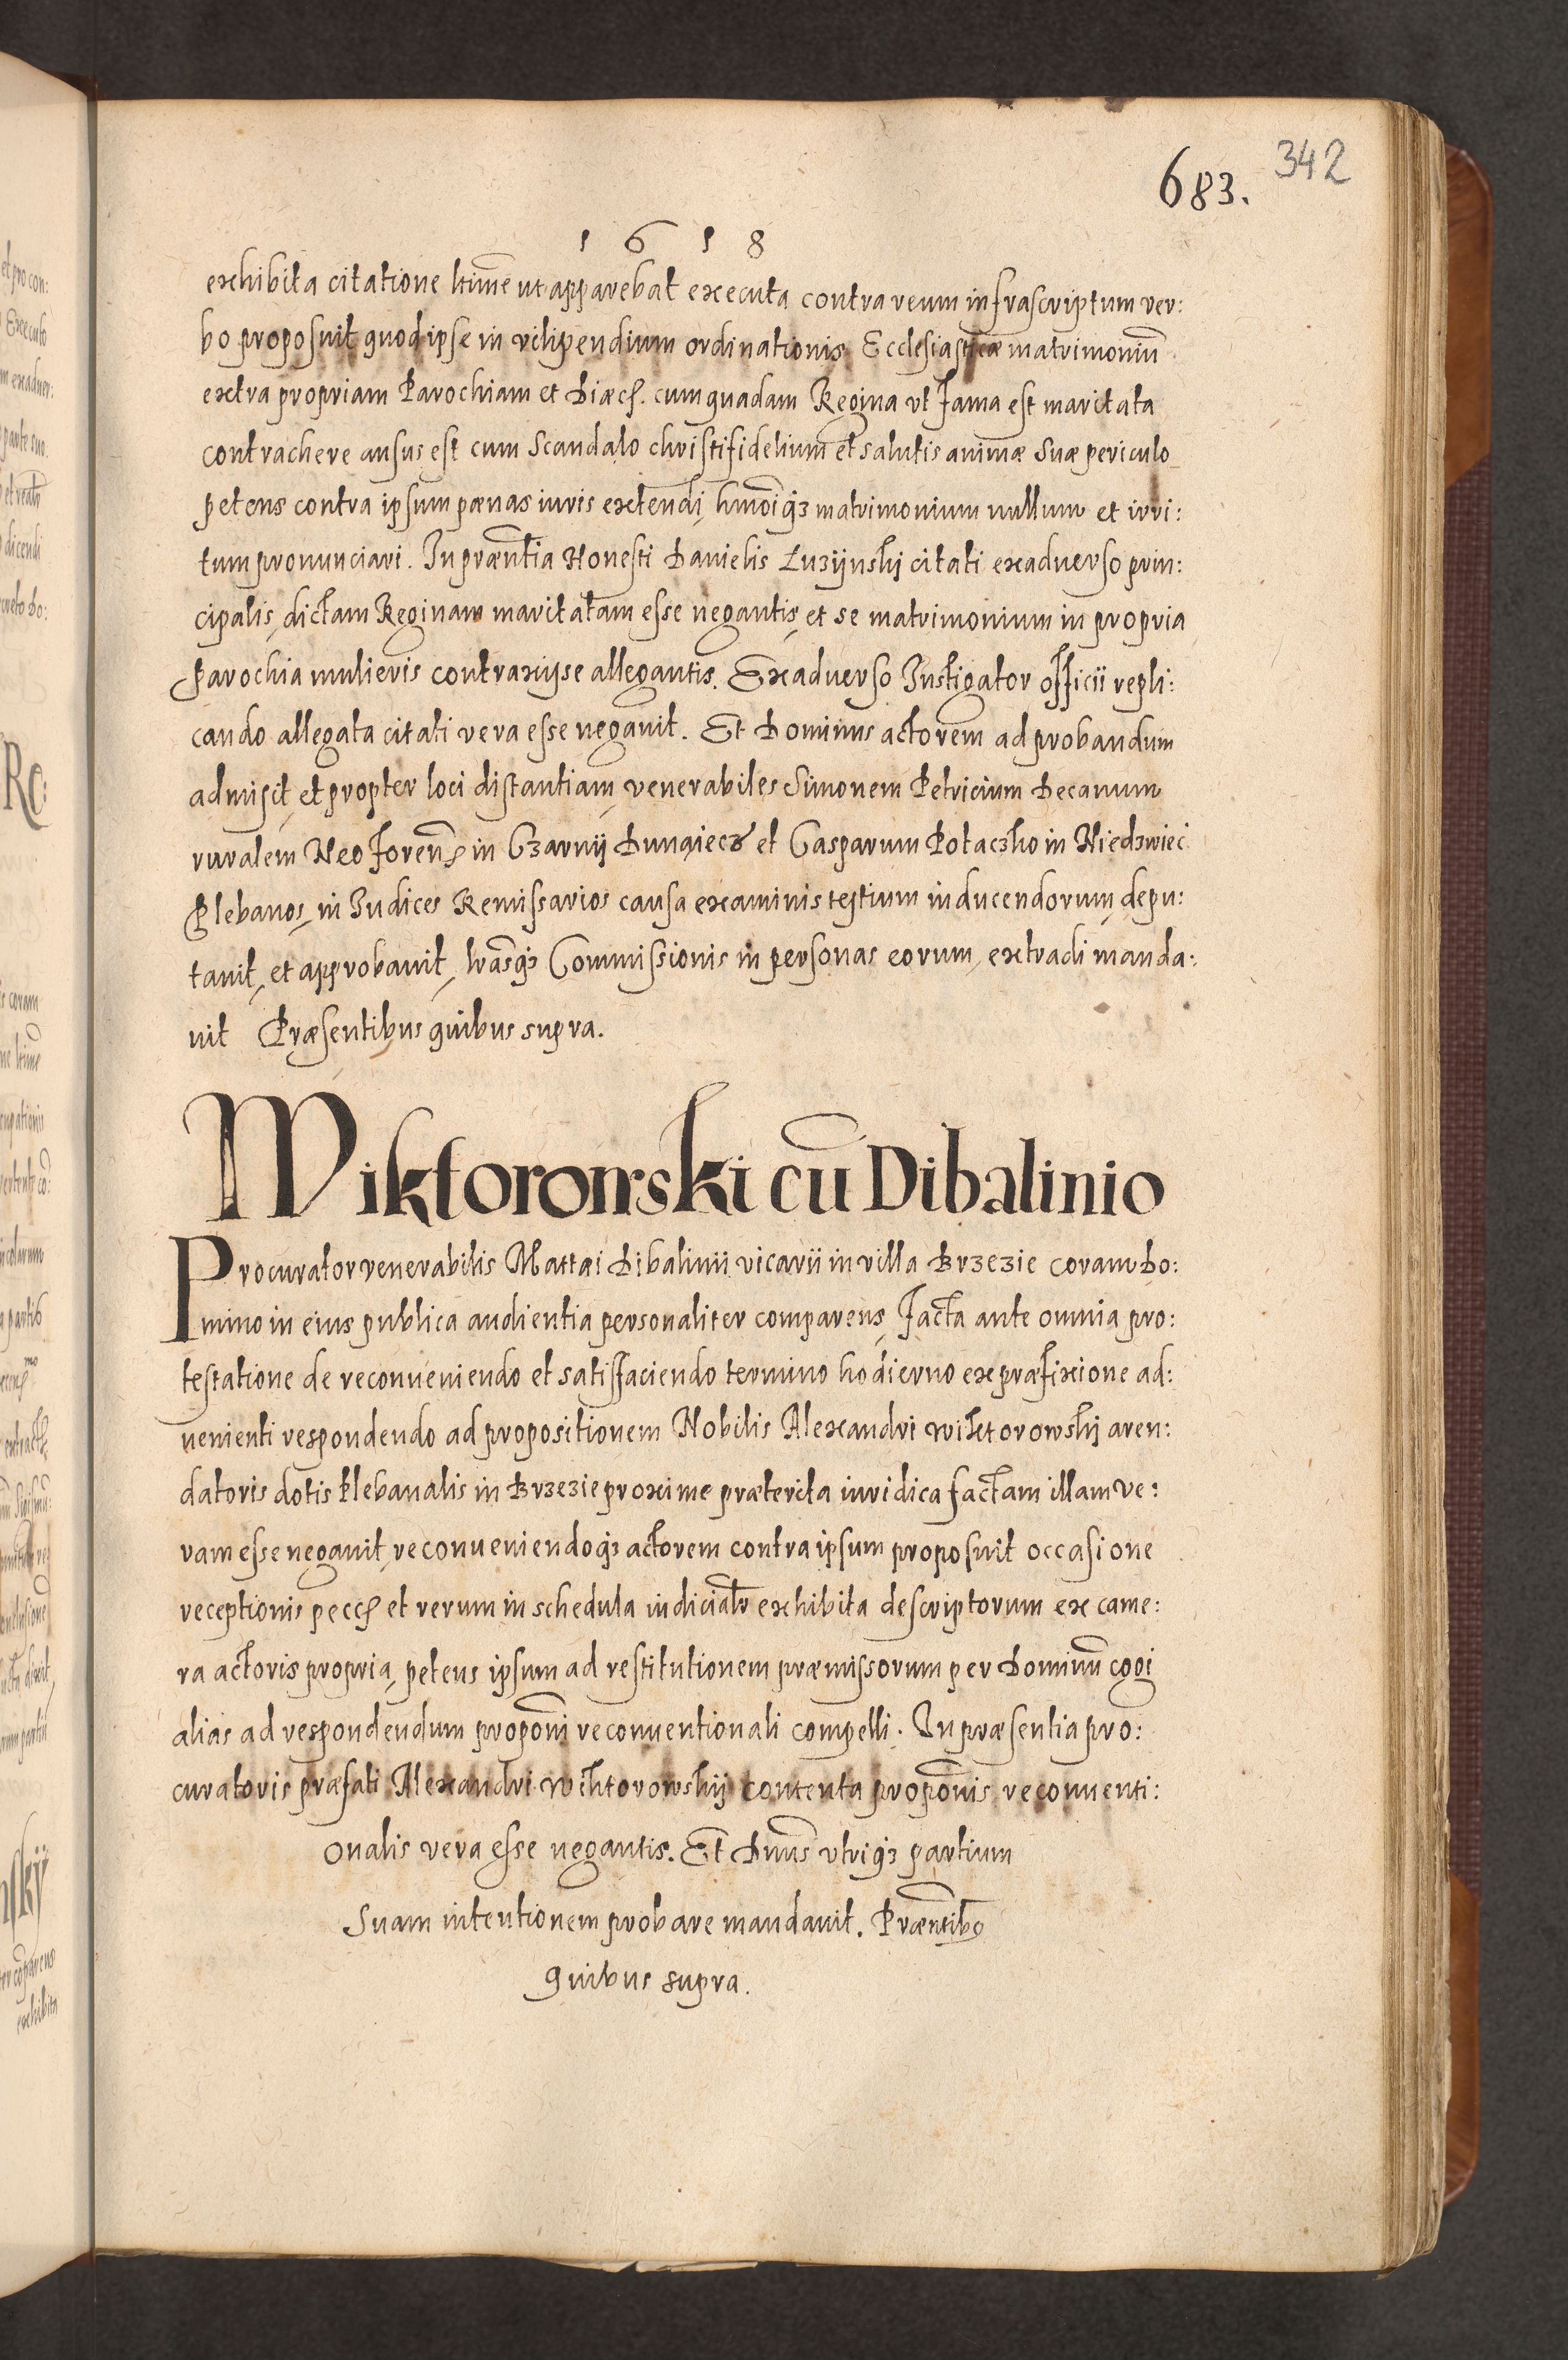 683. 342
1618
exhibita citatione ltime ut apparebat executa contra reum infrascriptum ver:
bo proposuit quod ipse in vilipendium ordinationis Ecclesiasticæ matrimoniū
extra propriam Parochiam et Diæc. cum quadam Regina vt fama est maritata
contrachere ausus est cum Scandalo christifidelium et salutis animæ suæ periculo
petens contra ipsum pænas iuris extendi, hmoiq3 matrimonium nullum et irri:
tum pronunciari. In præntia Honesti Danielis Luzijnskj citati exaduerso prin:
cipalis, dictam Reginam maritatam esse negantis, et se matrimonium in propria
Parochia mulieris contraxijse allegantis. Exaduerso Instigator officii repli:
cando allegata citati vera esse negauit. Et Dominus actorem ad probandum
admisit, et propter loci distantiam, venerabiles Simonem Petricium Decanum
ruralem Neoforen in Czarnij Dunaiecz et Gasparum Potaczko in Niedzwiec
Plebanos, in Iudices Remissarios causa examinis testium inducendorum, depu:
tauit, et approbauit, lrasq3 Commissionis in personas eorum, extradi manda:
uit Præsentibus quibus supra.
Wiktorowski cū Dibalinio
Procurator venerabilis Mattæi Dibalinii vicarii in villa Brzezie coram Do:
mino in eius publica audientia personaliter comparens, facta ante omnia pro:
testatione de reconueniendo et satisfaciendo termino hodierno ex præfixione ad:
uenienti respondendo ad propositionem Nobilis Alexandri Wiktorowskj aren:
datoris dotis Plebanalis in Brzezie proxime præterita iuridica factam illam ve:
ram esse negauit, reconueniendoq3 actorem contra ipsum proposuit occasione
receptionis pecc et rerum in schedula iudicialr exhibita descriptorum ex came:
ra actoris propria, petens ipsum ad restitutionem præmissorum per Dominū cogi
alias ad respondendum proponi reconuentionali compelli. In præsentia pro:
curatoris præfati Alexandri Wiktorowskij contenta proponis reconuenti:
onalis vera esse negantis. Et Dnus vtriq3 partium
Suam intentionem probare mandauit. Præntib9
quibus supra.